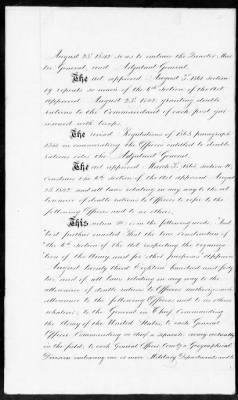 August 23d 1842 so as to embrace the Quarter Mas
ter General, and Adjutant General.
The act approved August 3d 1861 section
19 repeals so much of the 6th section of the Act
approved August 23d 1842, granting double
rations to the Commandant of each post gar
risoned with troops.
The revised Regulations of 1863 paragraph
in enumerating the Officers entitled to double
rations omits the Adjutant General.
The Act approved March 3d 1865 section 11
construes the 6th section of the Act approved August 23
1842, and all laws relating in any way to the al
lowance of double rations to Officers to refer to the
following Officers and to no others.
This section 11 is in the following words: "And
be it further enacted That the true construction of
the 6th section of the Act respecting the organiza
tion of the Army and for other purposes Approved
August twenty third Eighteen hundred and forty
two, and of all laws relating in any way to the
allowance of double rations to Officers authorizes such
allowance to the following Officers and to no others
whatever; to the General in Chief Commanding
the Army of the United States, to each General
Officer Commanding in chief a separate army actually
in the field; to each General Officer Comdg a Geographical
Division embracing one or more Military Departments and to